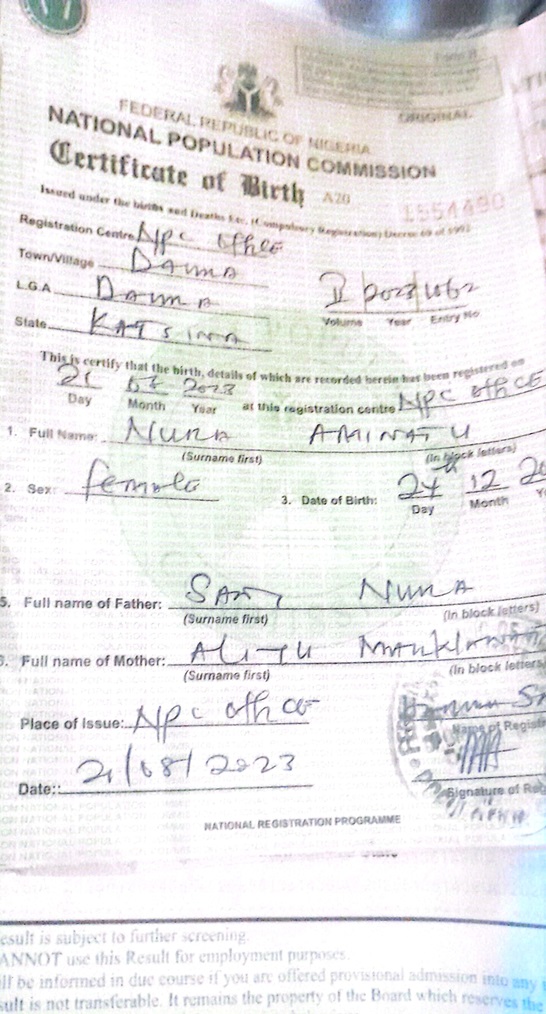 ORIGINAL
FEDERAL REPUBLIC OF NIGERIA
NATIONAL POPULATION COMMISSION
Certificate of Birth A20
1554490
Issued under the births and Deaths Etc. (Compulsory Registration) Decree 69 of 1992
Registration Centre NPC office
Town/Village DAURA
L.G.A DAURA
II 2023
Volume Year Entry No
State KATSINA
This is certify that the birth, details of which are recorded herein has been registered on
21 08 2023
Day Month Year at this registration centre NPC office
1. Full Name: NURA AMINATU
(Surname first) (In block letters)
2. Sex: female 3. Date of Birth: 24th 12 20
Day Month Y
5. Full name of Father: SANI NURA
(Surname first) (In block letters)
Full name of Mother: ALIYU
(Surname first) (In block letters
Place of Issue: NPC office
Name of Regist
Date:: 21/08/2023
Signature of Reg
NATIONAL REGISTRATION PROGRAMME
esult is subject to further screening.
ANNOT use this Result for employment purposes.
ll be informed in due course if you are offered provisional admission into any
sult is not transferable. It remains the property of the Board which reserves the